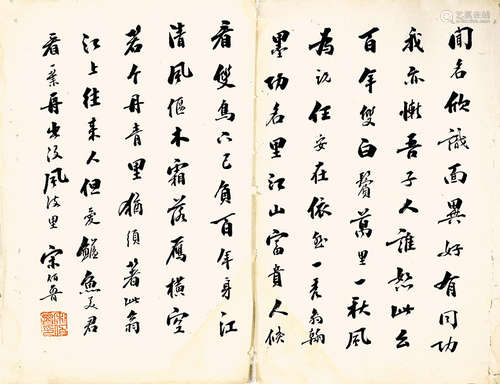 闻名欣識面異好有同功
我亦慚吾子人誰恕此公
百年雙白鬢萬里一秋風
為說任安在依然一禿翁翰
墨功名里江山富貴人倏
看雙鳥下已負百年身江
清風偃木霜落雁橫空
若个丹青里猶須著此翁
江上往來人但愛鱸魚美君
看一葉舟出沒風波里 宋伯魯